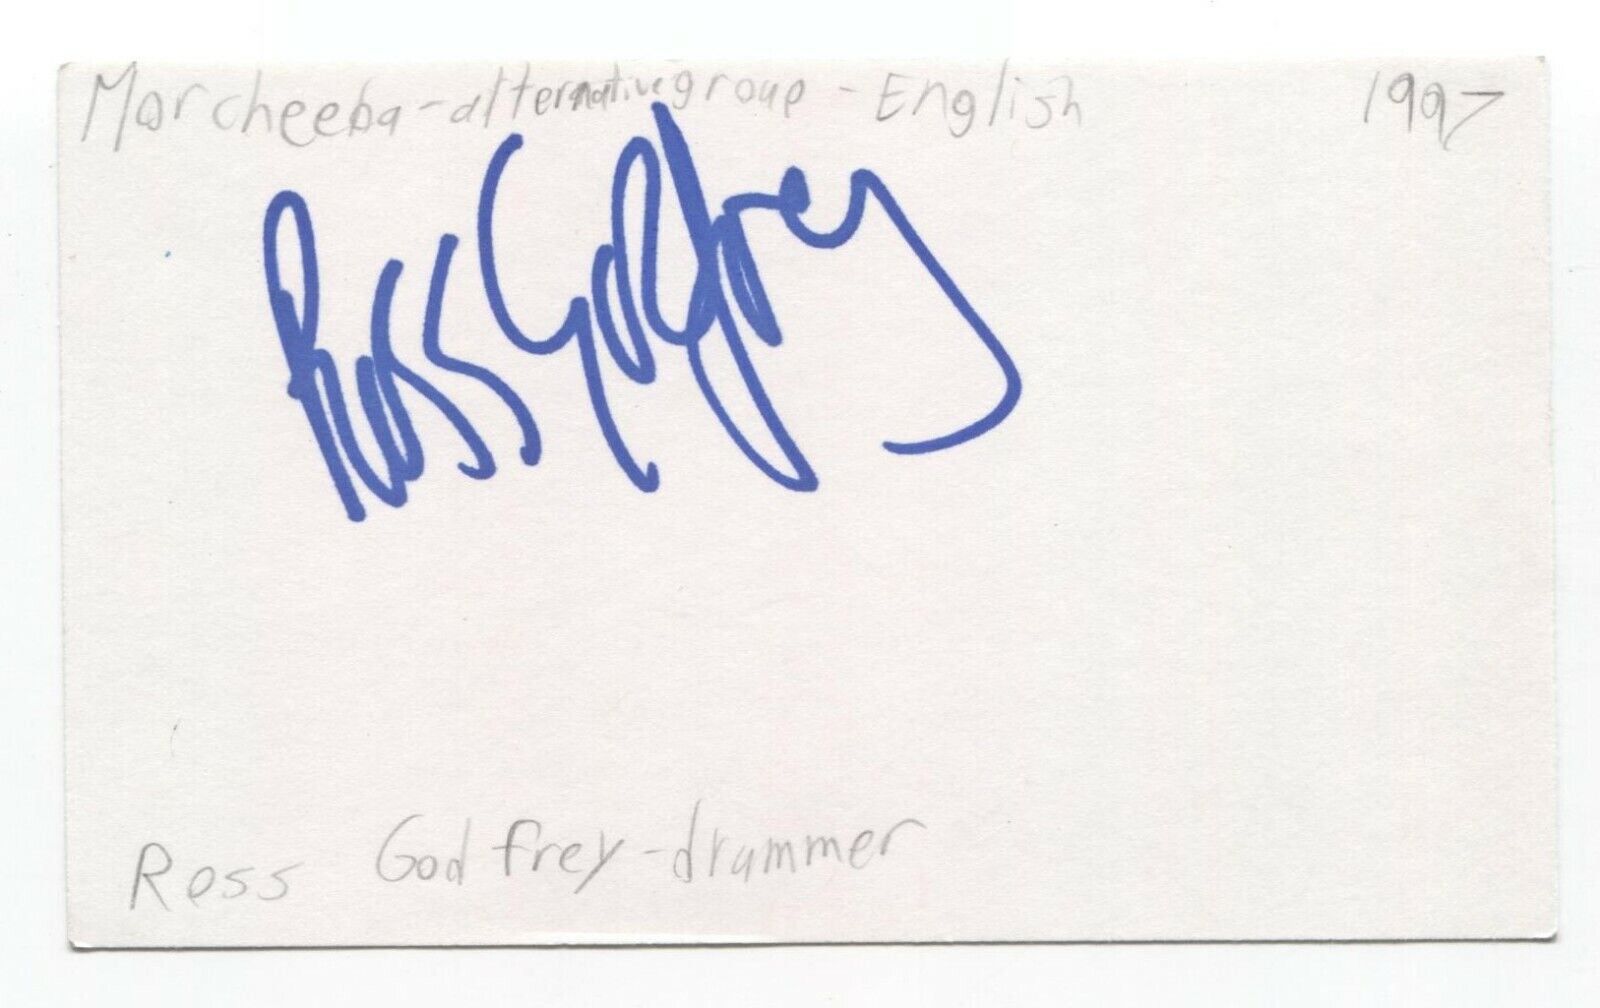 Morcheeba-alternative group - English 1997
Ross Godfrey
Ross Godfrey-drummer